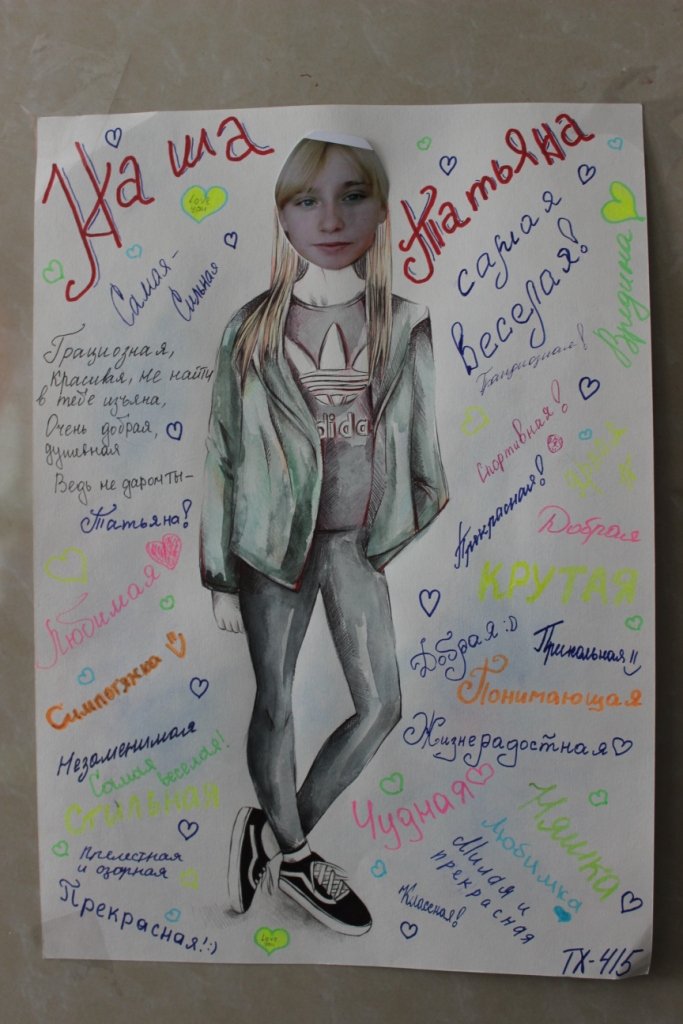 Наша
Татьяна
Love you
Самая-
Сильная
самая
Веселая!
Вредина
Грациозная,
красивая, не найти
в тебе изъяна,
Очень добрая,
душевная
Ведь не даром ты-
Татьяна!
adidas
Спортивная!
Прекрасная!
Добрая
КРУТАЯ
Любимая
Добрая :D
Прикольная!!
Симпотяжка
Понимающая
Незаменимая
Жизнерадостная
Самая веселая!
Стильная
Чудная
Няшка
Любимка
Милая и
прекрасная
Прелестная
и озорная
Классная!
Прекрасная! :)
Love you
ТХ-415